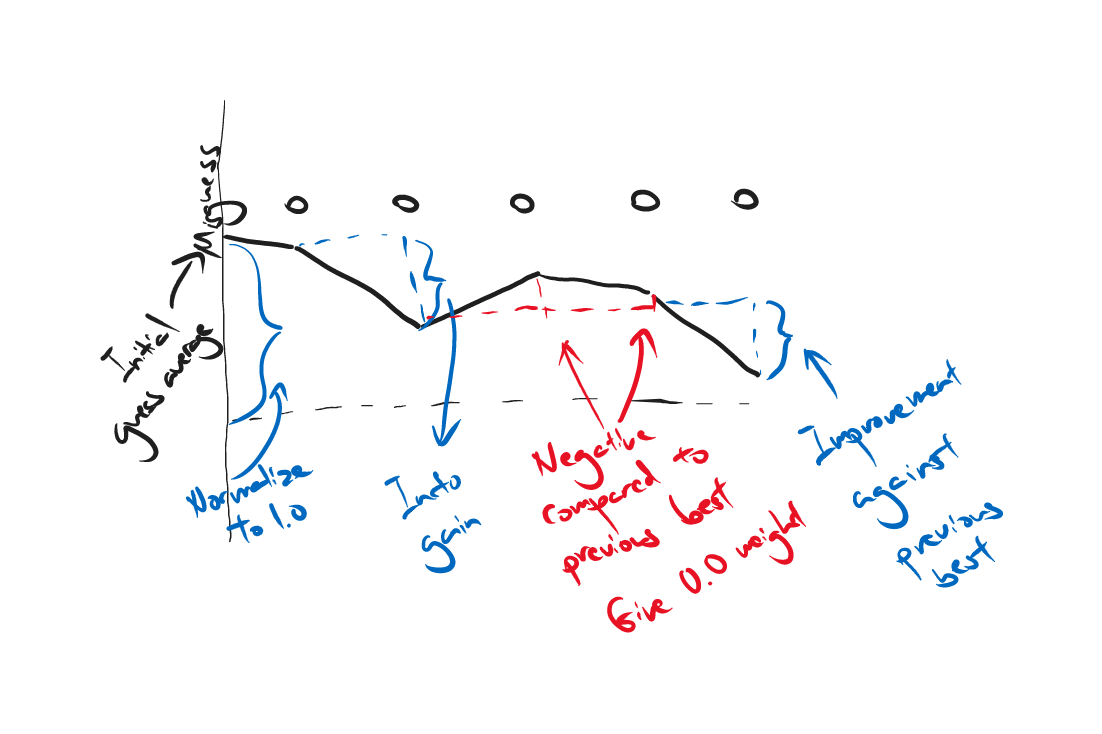 0 0 0 0 0
Initial
guess average
Normalize
to 1.0
Info
gain
Negative
compared to
previous best
Give 0.0 weight
Improvement
against
previous
best